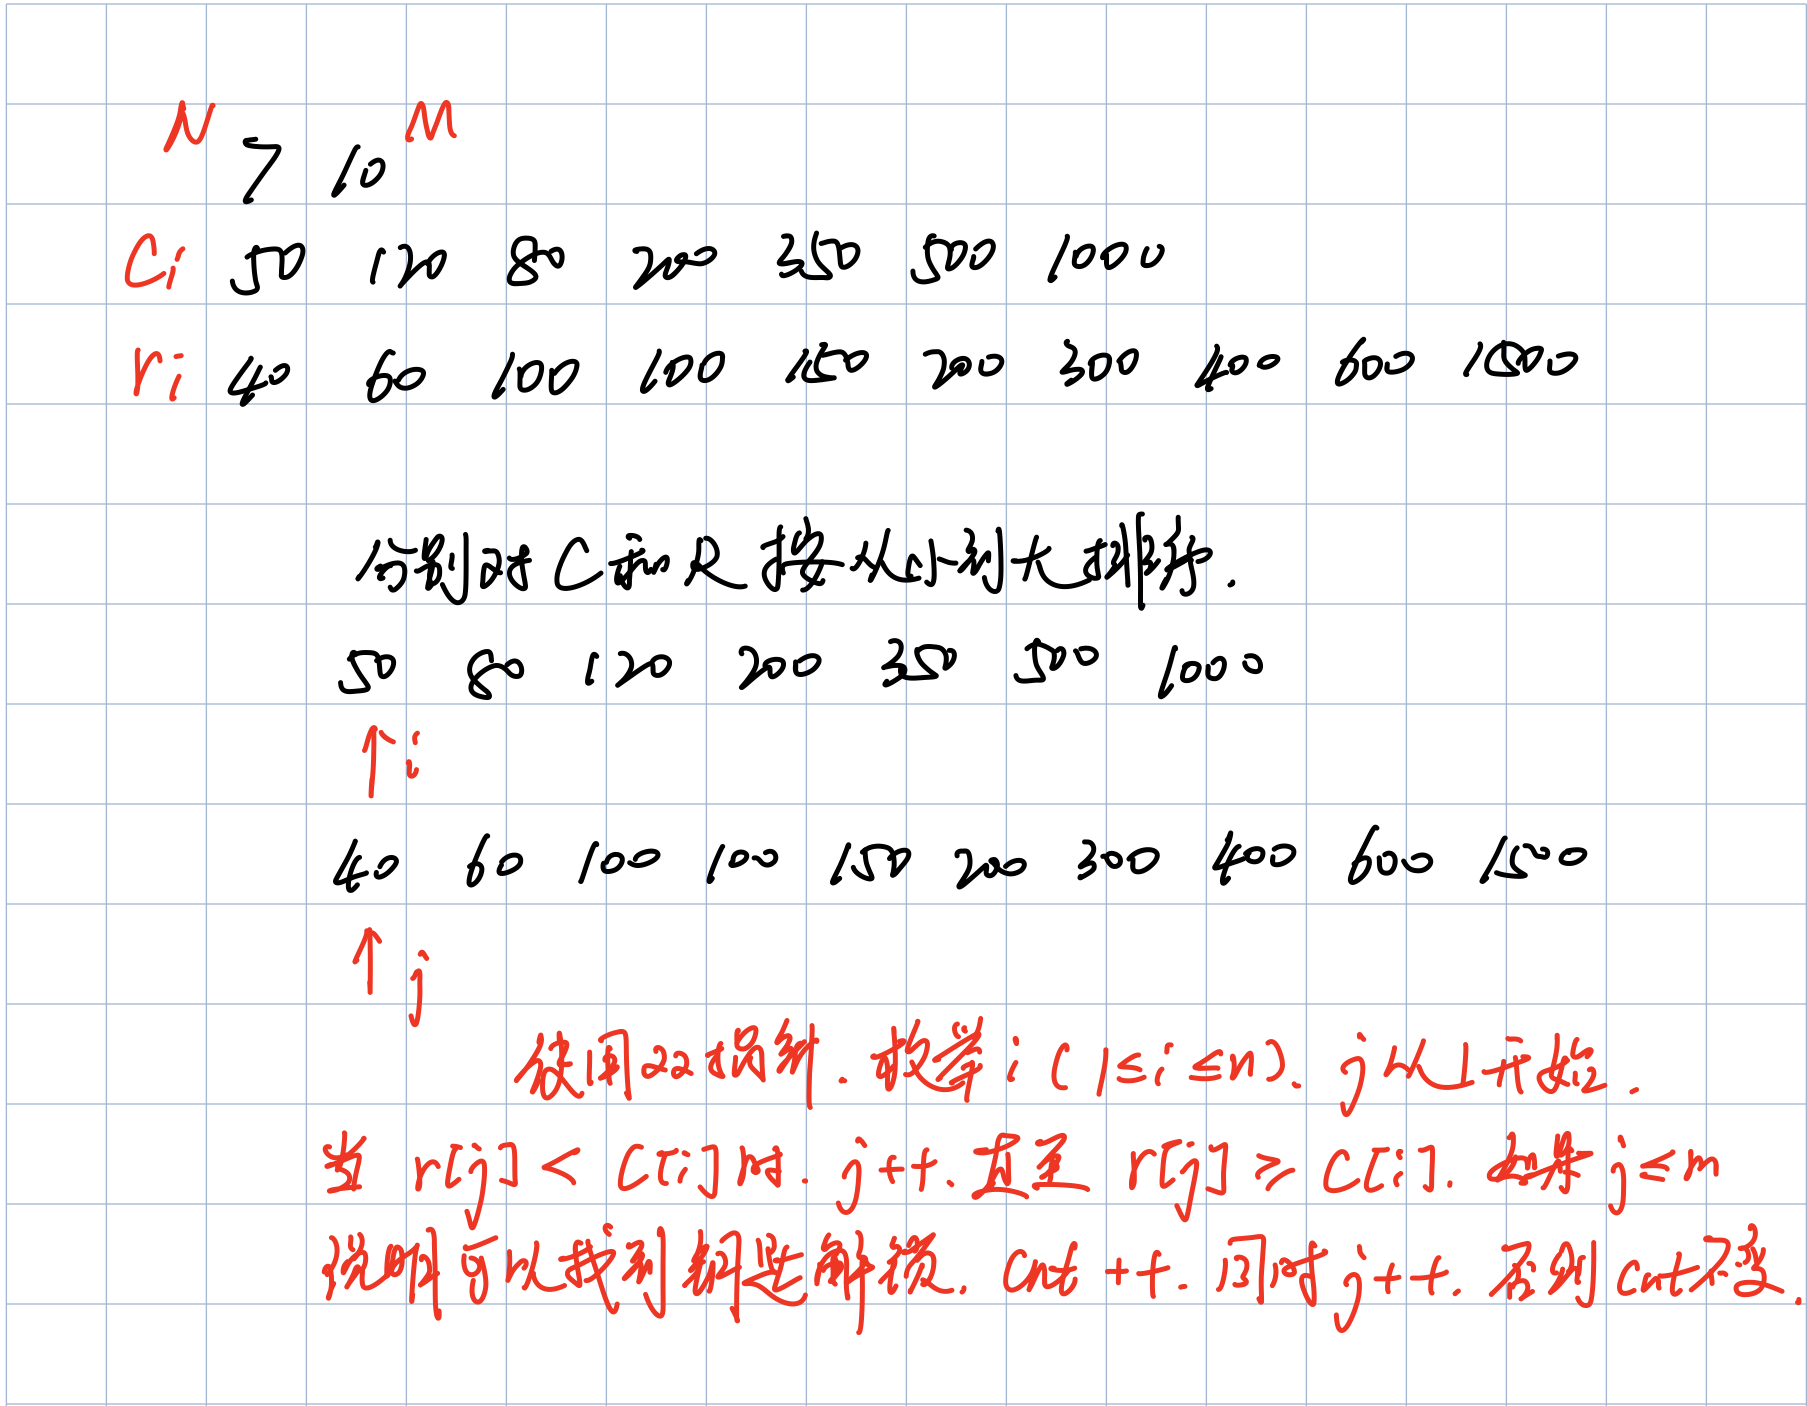 N 7 10 M
Ci 50 120 80 200 350 500 1000
ri 40 60 100 100 150 200 300 400 600 1500
分别对 C 和 R 按从小到大排序.
50 80 120 200 350 500 1000
↑ i
40 60 100 100 150 200 300 400 600 1500
↑ j
使用双指针. 枚举 i (1≤i≤n). j 从 1 开始.
当 r[j] < C[i] 时. j++. 直至 r[j] ≥ C[i]. 如果 j≤m
说明可以找到钥匙解锁. cnt ++. 同时 j++. 否则 cnt 不变.